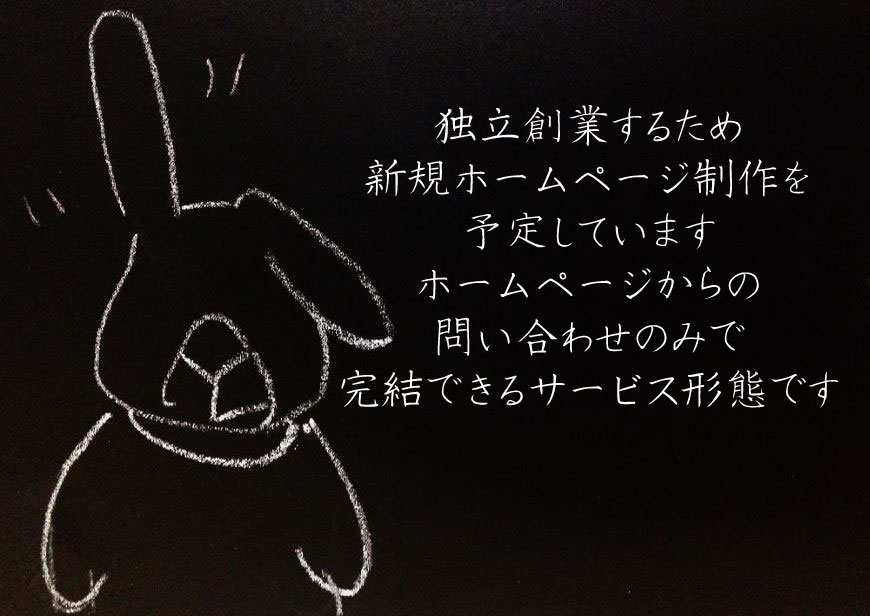 独立創業するため
新規ホームページ制作を
予定しています
ホームページからの
問い合わせのみで
完結できるサービス形態です